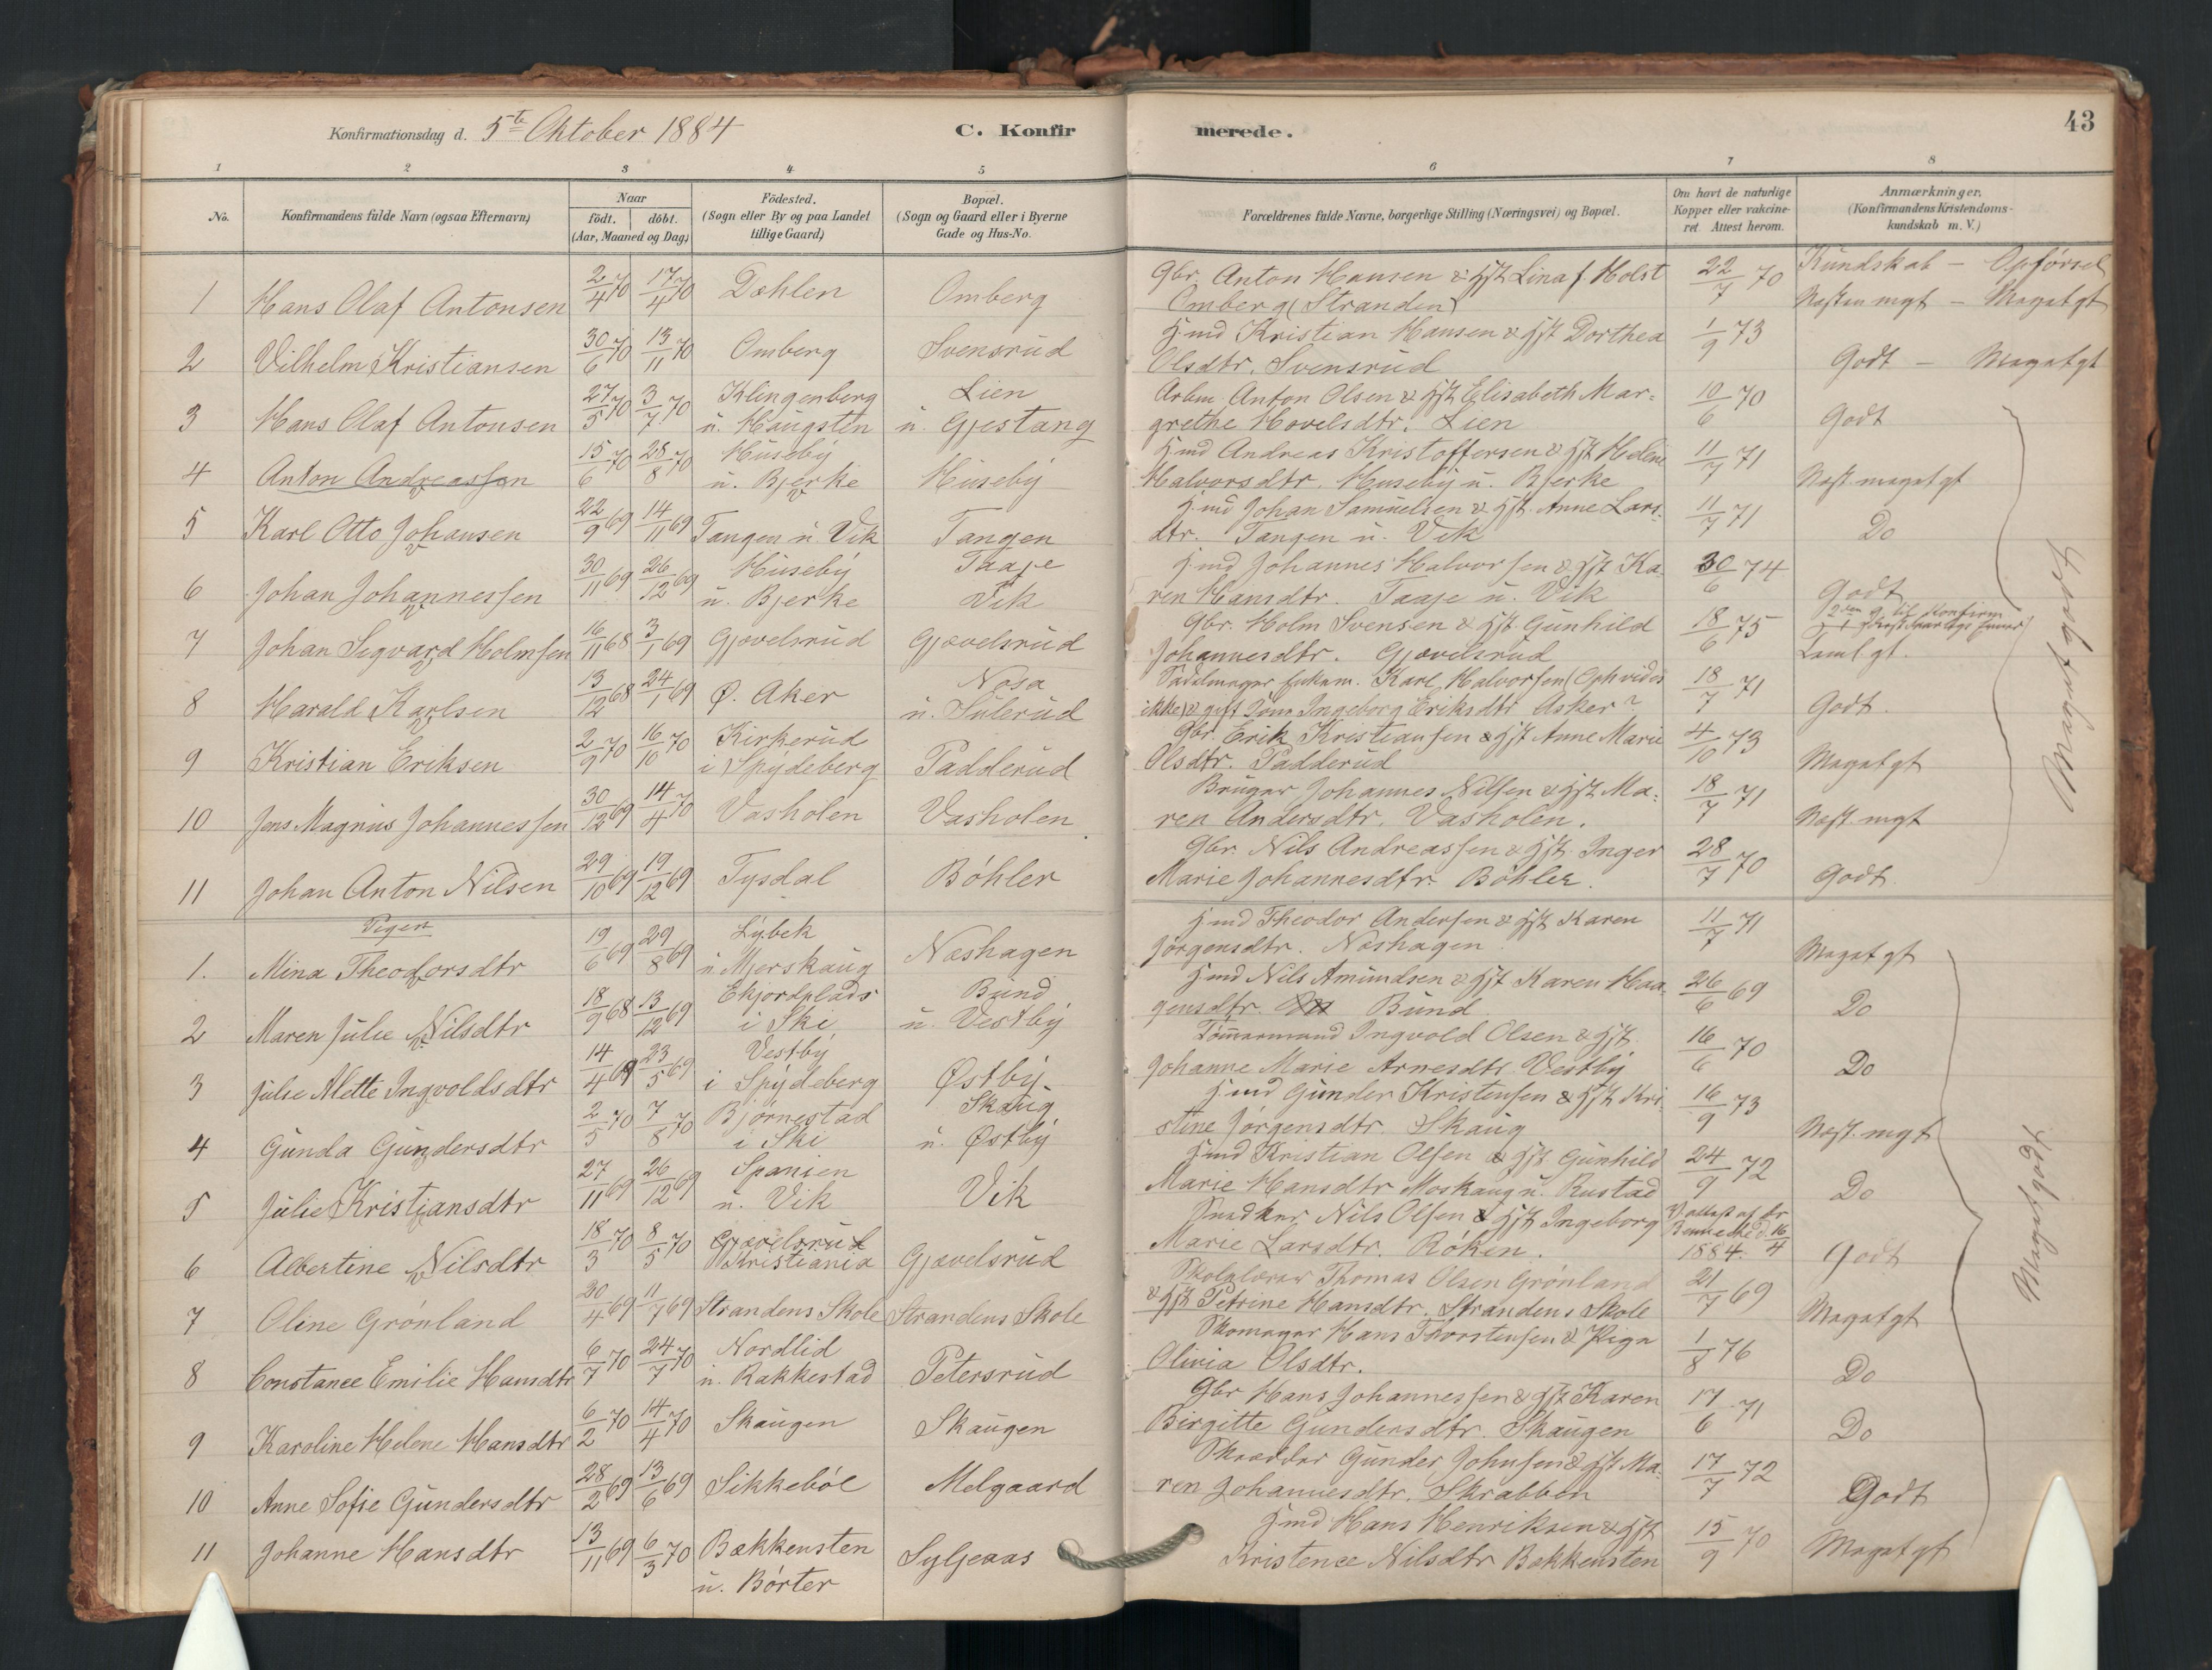 Konfirmationsdag d. 5te Oktober 1884
C. Konfirmerede.
43
1 2 3 4 5 6 7 8
No.
Konfirmandens fulde Navn (ogsaa Efternavn)
Naar
födt. döbt.
(Aar, Maaned og Dag)
Födested.
(Sogn eller By og paa Landet
tillige Gaard)
Bopæl.
(Sogn og Gaard eller i Byerne
Gade og Hus-No.
Forældrenes fulde Navne, borgerlige Stilling (Næringsvei) og Bopæl.
Om havt de naturlige
Kopper eller vakcine-
ret. Attest herom.
Anmærkninger.
(Konfirmandens Kristendoms-
kundskab m. V.)
Kundskab - Opførsel
1 Hans Olaf Antonsen 2/4 70 17/4 70 Dæhlen Omberg
Gbr. Anton Hansen & Hst Lina f Holst
Omberg (Stranden) 22/7 70 Næsten mgt - Megetgt
2 Vilhelm Kristiansen 30/6 70 13/11 70 Omberg Svensrud
Hmd Kristian Hansen & Hst Dorthea
Olsdtr. Svensrud 1/9 73 Godt - Megetgt
3 Hans Olaf Antonsen 27/5 70 3/7 70 Klingenberg
u. Haugsten Lien
u. Gjestang
Arbm. Anton Olsen & Hst Elisabeth Mar-
grethe Hovelsdtr. Lien 10/6 70 Godt
4 Anton Andreassen 15/6 70 28/8 70 Huseby
u. Bjerke Huseby
Hmd Andreas Kristoffersen & Hst Helene
Halvorsdtr. Huseby u. Bjerke 11/7 71 Næst. megetgt
5 Karl Otto Johansen 22/9 69 14/11 69 Tangen u. Vik Tangen
Hmd Johan Samuelsen & Hst. Anne Lars-
dtr. Tangen u. Vik 11/7 71 Do
6 Johan Johannessen 30/11 69 26/12 69 Huseby
u. Bjerke Taaje
Vik
Hmd Johannes Halvorsen & Hst Ka-
ren Hansdtr. Taaje u. Vik 30/6 74 Godt
7 Johan Sigvard Holmsen 16/11 68 3/1 69 Gjævelsrud Gjævelsrud
Gbr. Holm Svensen & Hst Gunhild
Johannesdtr. Gjævelsrud 18/6 75 2den g. til Konfirm
Temlgt.
8 Harald Karlsen 13/12 68 24/1 69 Ø. Aker Nosa
u. Sulerud
Sadelmager Karl Halvorsen (Oph vides
ikke) & gift Ingeborg Eriksdtr Asker? 18/7 71 Godt.
9 Kristian Eriksen 2/9 70 16/10 70 Kirkerud
i Spydeberg Padderud
Gbr. Erik Kristiansen & Hst Anne Marie
Olsdtr. Padderud 4/10 73 Megetgt
10 Jens Magnus Johannessen 30/12 69 14/4 70 Vasholen Vasholen
Bruger Johannes Nilsen & Hst Ma-
ren Andersdtr. Vasholen. 18/7 71 Næst. mgt
11 Johan Anton Nilsen 29/10 69 19/12 69 Tysdal Bøhler
Gbr. Nils Andreassen & Hst. Inger
Marie Johannesdtr. Bøhler. 28/7 70 Godt.
Meget godt
Piger
1. Mina Theodorsdtr 19/6 69 29/8 69 Lybek
u Mjerskaug Næshagen
Hmd Theodor Andersen & Hst Karen
Jørgensdtr. Næshagen. 11/7 71 Megetgt
2 Maren Julie Nilsdtr 18/9 68 13/12 69 Ekjordplads
i Ski Bund
u. Vestby
Hmd Nils Amundsen & Hst Karen Haa-
gensdtr. Bund 26/6 69 Do
3 Julie Mette Ingvoldsdtr 14/4 69 23/5 69 Vestby
i Spydeberg Østby
Tømmermand Ingvold Olsen & Hst.
Johanne Marie Arnesdtr. Vestby 16/6 70 Do
4 Gunda Gundersdtr 2/5 70 7/8 70 Bjørnestad
i Ski Skaug
u. Østby
Hmd Gunder Kristensen & Hst Kri-
stine Jørgensdtr. Skaug 16/9 73 Næst. mgt
5 Julie Kristiansdtr 27/11 69 26/12 69 Spanien
u. Vik Vik
Hmd Kristian Olsen & Hst. Gunhild
Marie Hansdtr Moskaug u. Rustad 24/9 72 Do
6 Albertine Nilsdtr 18/3 70 8/5 70 Gjævelsrud
Kristiania Gjævelsrud
Snedker Nils Olsen & Hst Ingeborg
Marie Larsdtr. Røken. V. attest af dr
Benneche d. 16/4
1884. Godt
7 Oline Grønland 20/4 69 11/7 69 Strandens Skole Strandens Skole
Skolelærer Thomas Olsen Grønland
& Hst Petrine Hansdtr. Strandens Skole 21/7 69 Megetgt
8 Constance Emilie Hansdtr 6/7 70 24/7 70 Nordlid
u. Rakkestad Petersrud
Skomager Hans Thorstensen & Pige
Olivia Olsdtr. 1/8 76 Do
9 Karoline Helene Hansdtr 6/2 70 14/4 70 Skaugen Skaugen
Gbr Hans Johannessen & Hst Karen
Birgitte Gundersdtr. Skaugen 17/6 71 Do
10 Anne Sofie Gundersdtr 28/2 69 13/6 69 Sikkebøl Melgaard
Skrædder Gunder Johnsen & Hst Ma-
ren Johannesdtr. Skrabben 17/7 72 Godt
11 Johanne Hansdtr 13/11 69 6/3 70 Bækkensten
u. Børter Syljeaas
Hmd Hans Henriksen & Hst
Kristence Nilsdtr Bakkensten 15/9 70 Megetgt
Meget godt